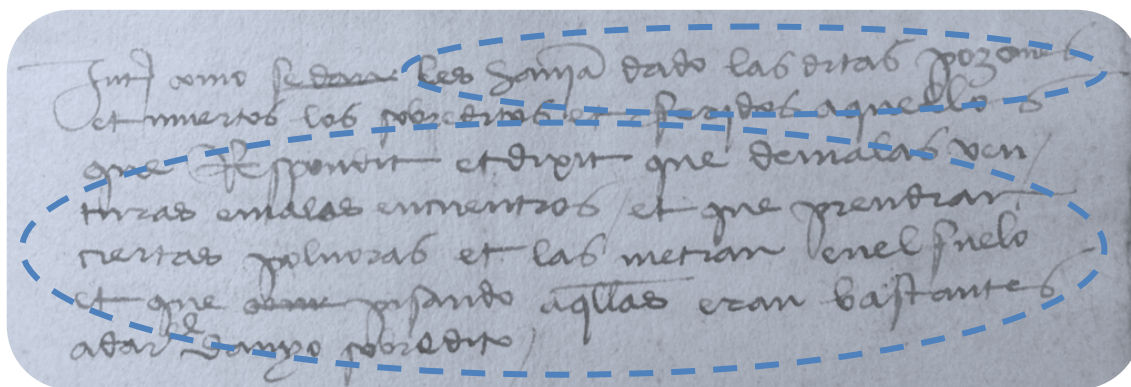 Int como se dan les hauia dado las ditas pozones
et muertos los sobreditos et feridos aquellos
que Respondit et dixit que de malas ven
turas e malas encuentros et que prendran
ciertas poluoras et las metran en el suelo
et que pisando aqllas eran bastantes
a dar el danyo sobredito